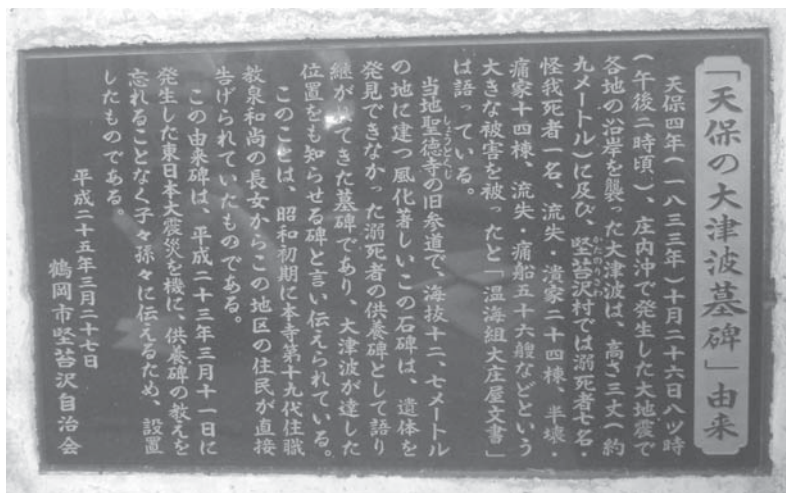 「天保の大津波墓碑」由来
天保四年(一八三三年)十月二十六日八ツ時
(午後二時頃)、庄内沖で発生した大地震で
各地の沿岸を襲った大津波は、高さ三丈(約
九メートル)に及び、堅苔沢村では溺死者七名・
かたのりさわ
怪我死者一名、流失・潰家二十四棟、半壊・
痛家十四棟、流失・痛船五十六艘などという
大きな被害を被ったと「温海組大庄屋文書」
は語っている。
当地聖徳寺の旧参道で、海抜十二、七メートル
しょうとくじ
の地に建つ風化著しいこの石碑は、遺体を
発見できなかった溺死者の供養碑として語り
継がれてきた墓碑であり、大津波が達した
位置をも知らせる碑と言い伝えられている。
このことは、昭和初期に本寺第十九代住職
教泉和尚の長女からこの地区の住民が直接
告げられていたものである。
この由来碑は、平成二十三年三月十一日に
発生した東日本大震災を機に、供養碑の教えを
忘れることなく子々孫々に伝えるため、設置
したものである。
平成二十五年三月二十七日
鶴岡市堅苔沢自治会